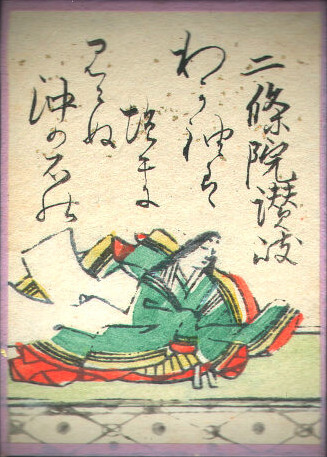 二條院讃岐
わか袖は
塩干に
みえぬ
沖の石の